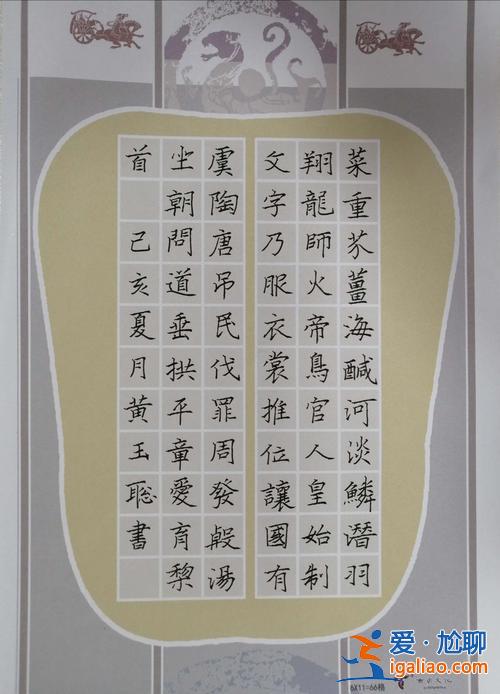 菜重芥薑海醎河淡鱗潛羽
翔龍師火帝鳥官人皇始制
文字乃服衣裳推位讓國有
虞陶唐吊民伐罪周發殷湯
坐朝問道垂拱平章愛育黎
首 己亥夏月黄玉聡書
6X11=66格
爱·尬聊
igaliao.com